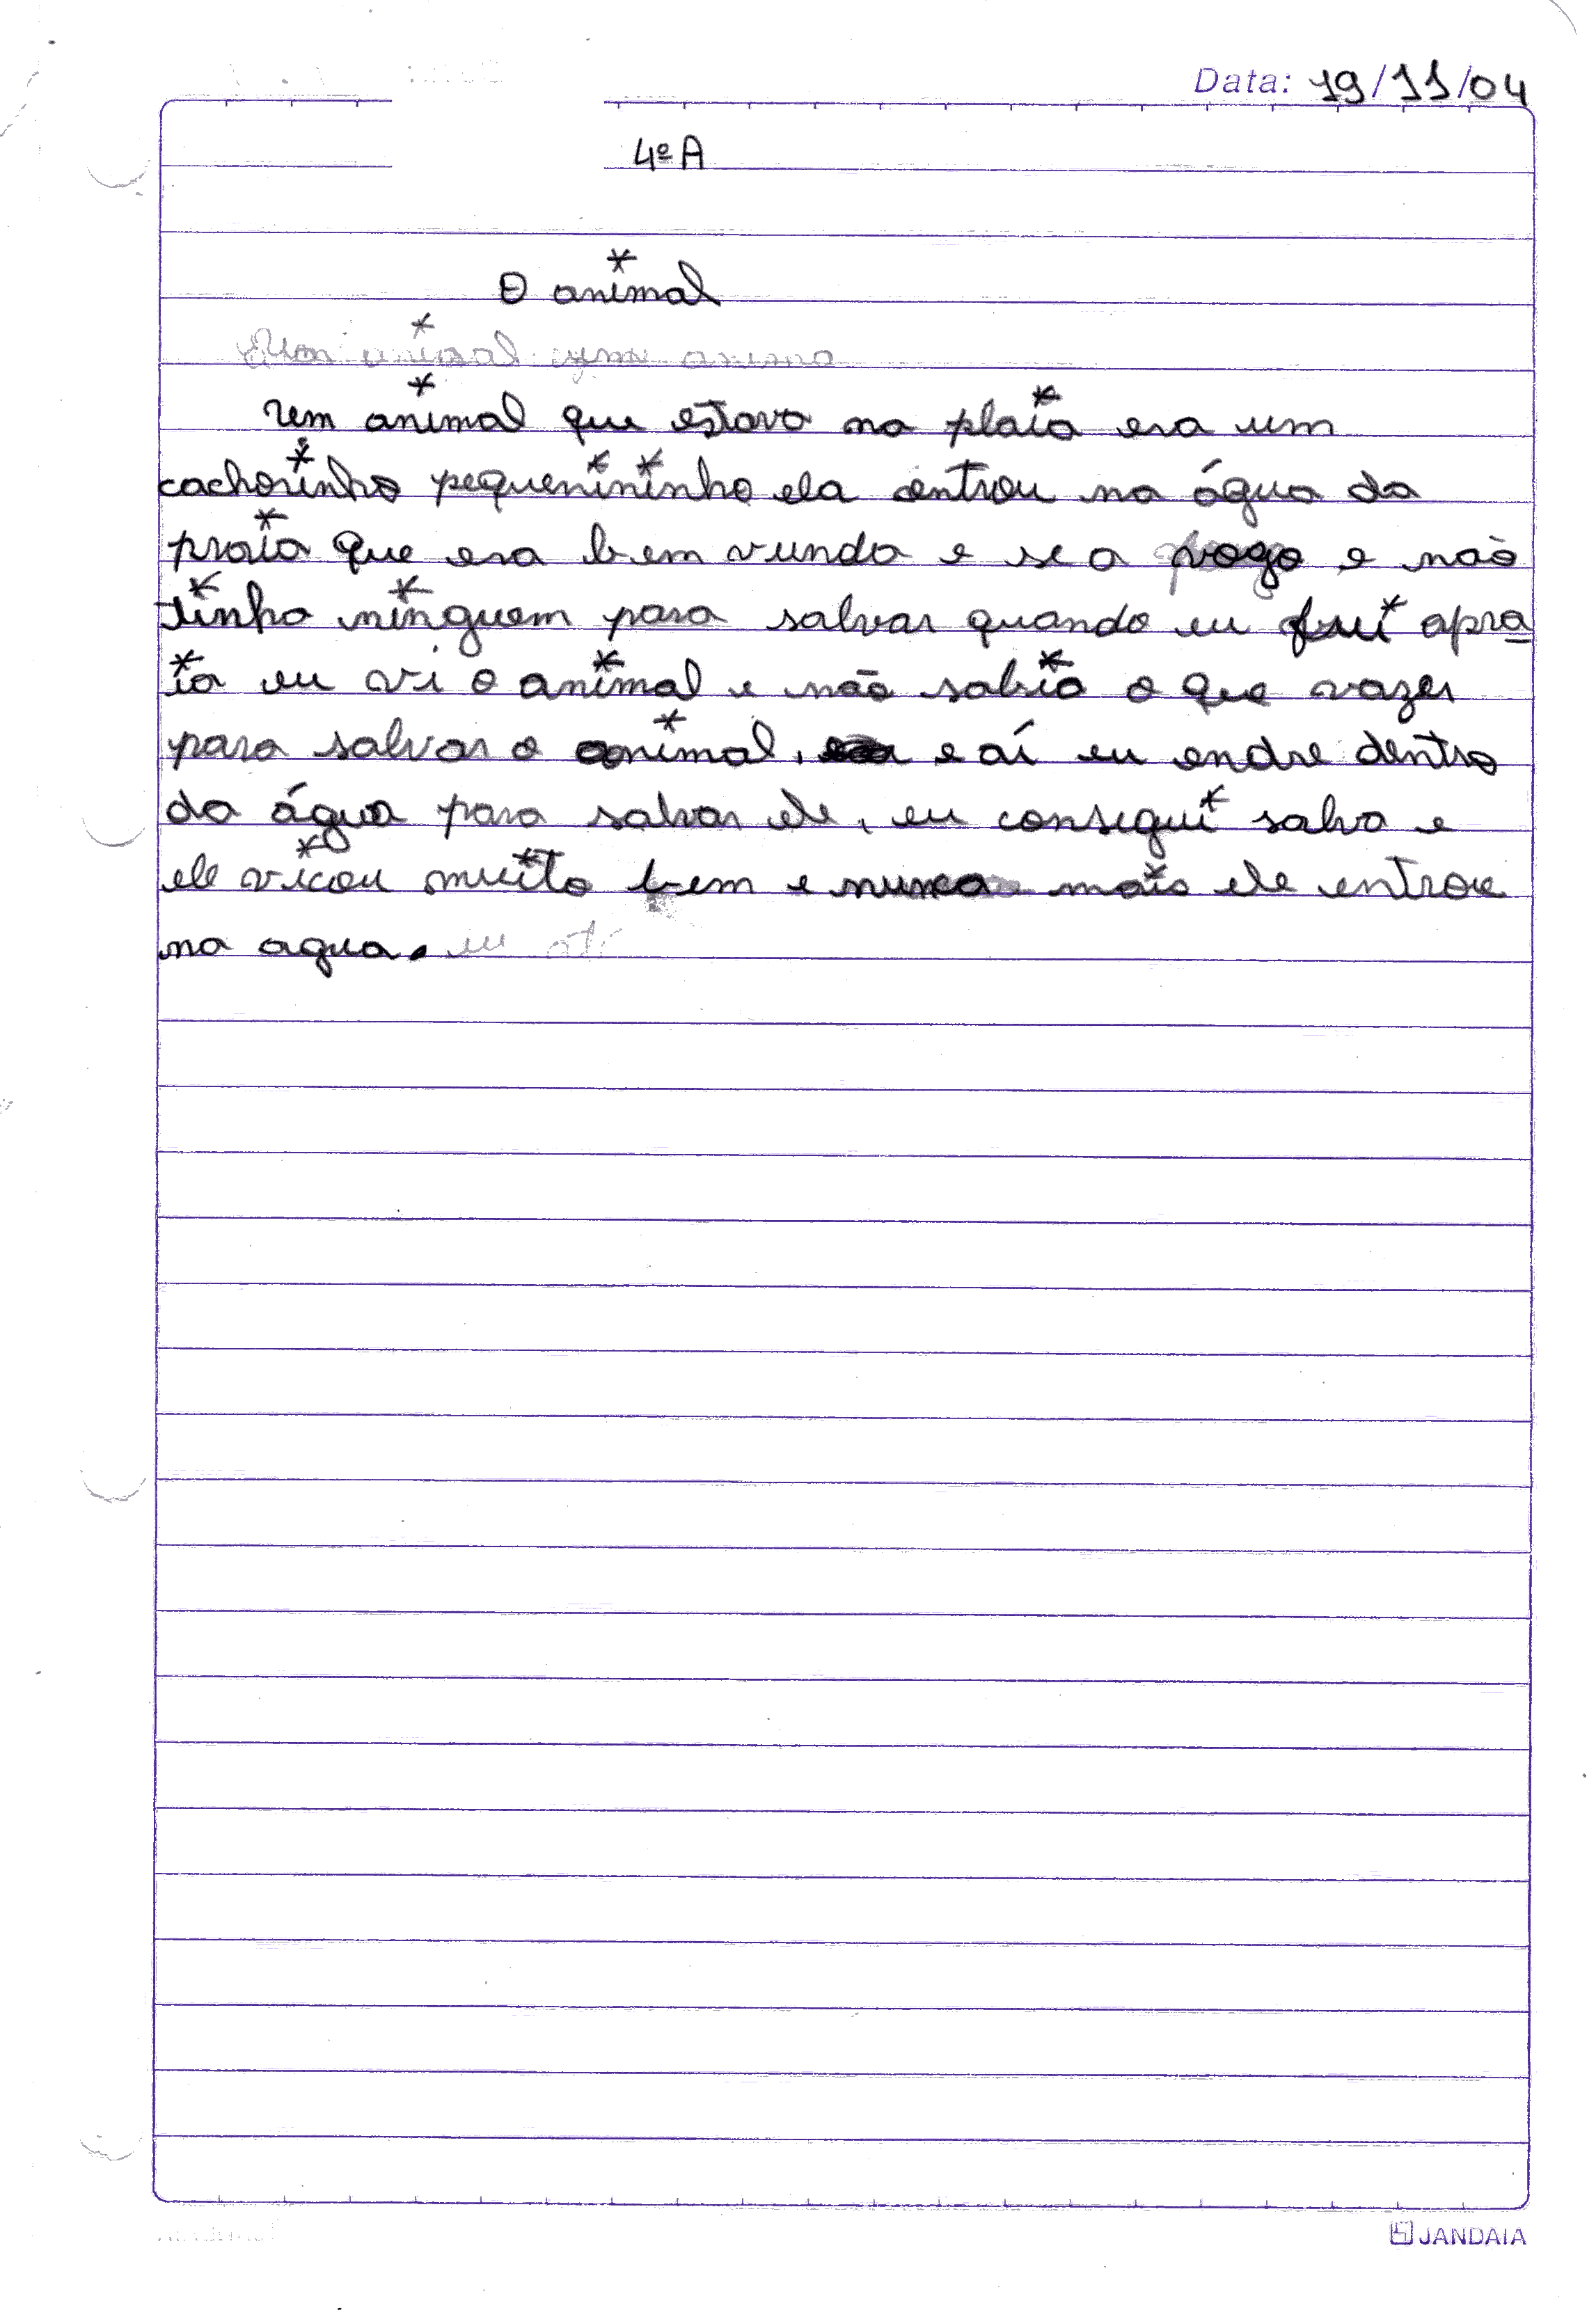 Data: 19/11/04
4º A
O animal
um animal que estava na plaia era um
cachorinho pequenininho ela entrou na água da
praia que era bem vunda e se a vogo e não
tinha ninguem para salvar quando eu fui apra
ia eu vi o animal e não sabia o que vazer
para salvar o animal, e aí eu endre dentro
da água para salvar ele, eu consegui salva e
ele vicou muito bem e nunca mais ele entroe
na agua. eu
JANDAIA